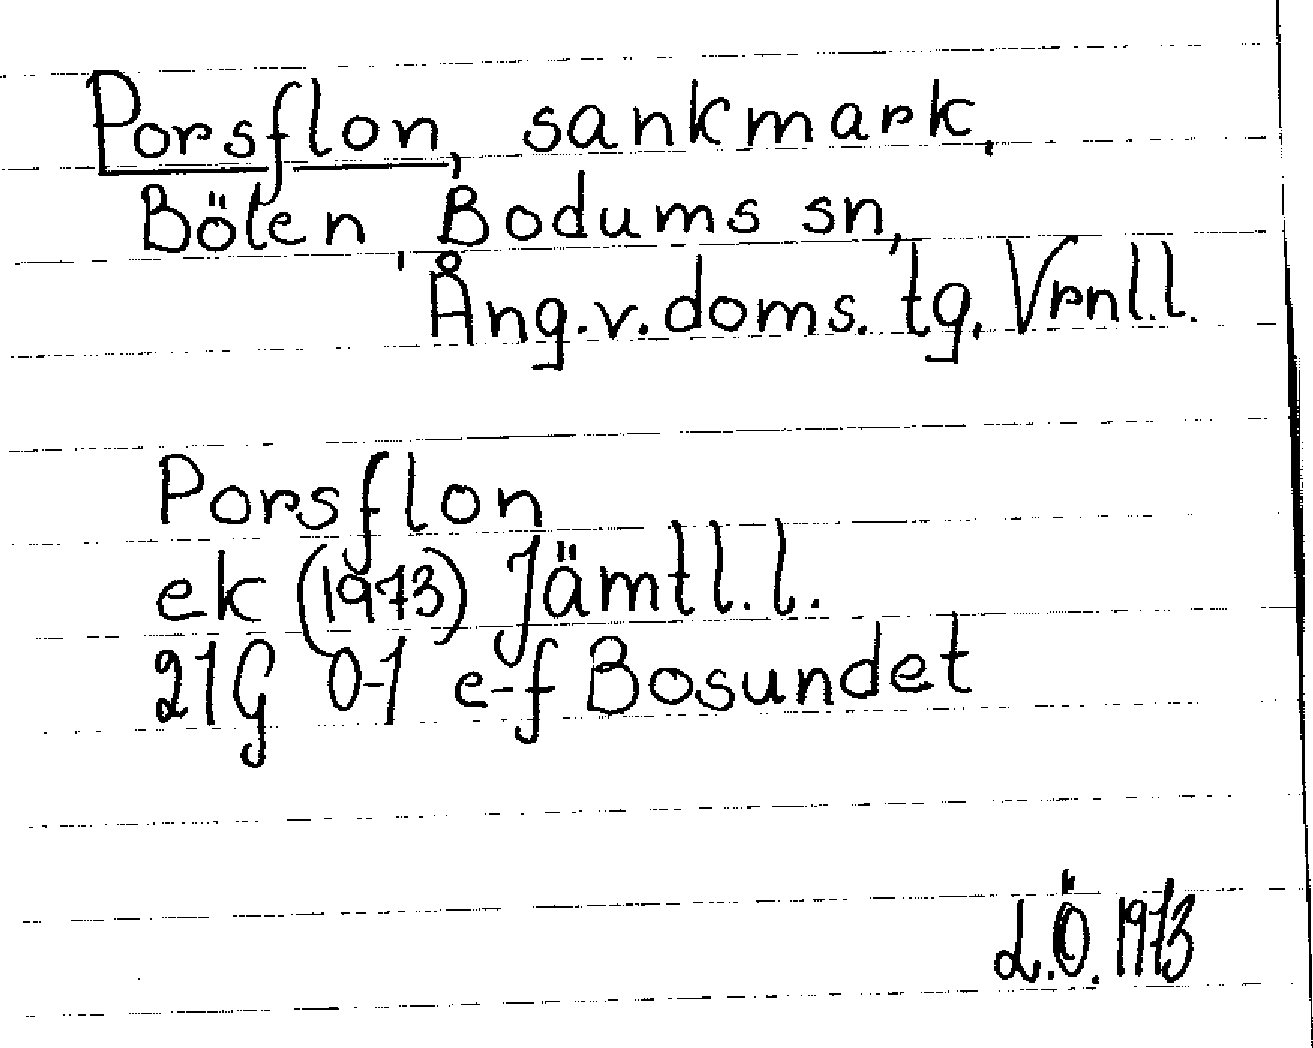 Porsflon, sankmark,
Bölen, Bodums sn,
Ång.v.doms. tg. Vrnl.l.
Porsflon
ek (1973) Jämtl.l.
21G 0-1 e-f Bosundet
L.Ö. 1973